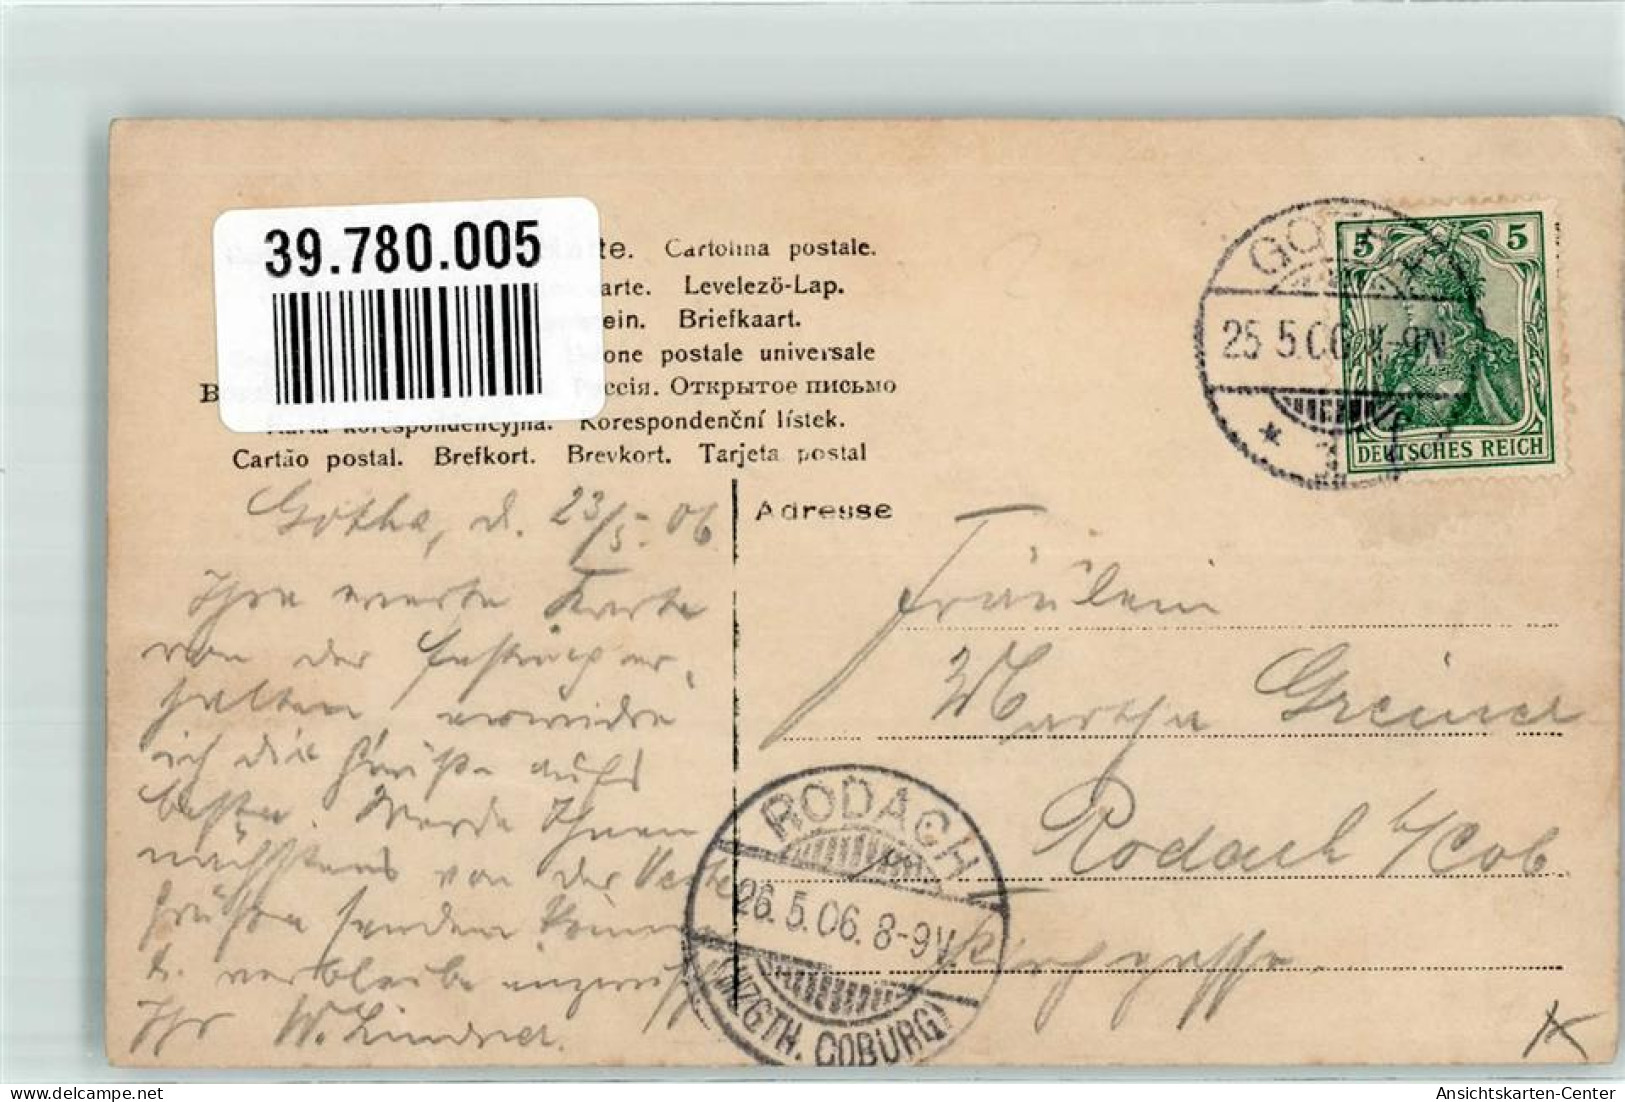 39.780.005
te. Cartolina postale.
arte. Levelező-Lap.
ein. Briefkaart.
one postale universale
Россія. Открытое письмо
Karta korespondencyjna. Korespondenční lístek.
Cartão postal. Brefkort. Brevkort. Tarjeta postal
Adresse
GOTHA
25 5.06 8-9N
5 5
DEUTSCHES REICH
Gotha, d. 23/5. 06
Ihre werte Karte
von der Festung er-
halten, erwidre
ich die Grüße aufs
beste. Werde Ihnen
nächstens von der Veste
Grüße senden können
u. verbleibe inzwisch
Ihr W. Lindner.
Fräulein
Martha Greiner
Rodach b/Cob
Kirchgasse.
RODACH
26.5.06. 8-9V.
(HZGTH. COBURG)
Ansichtskarten-Center